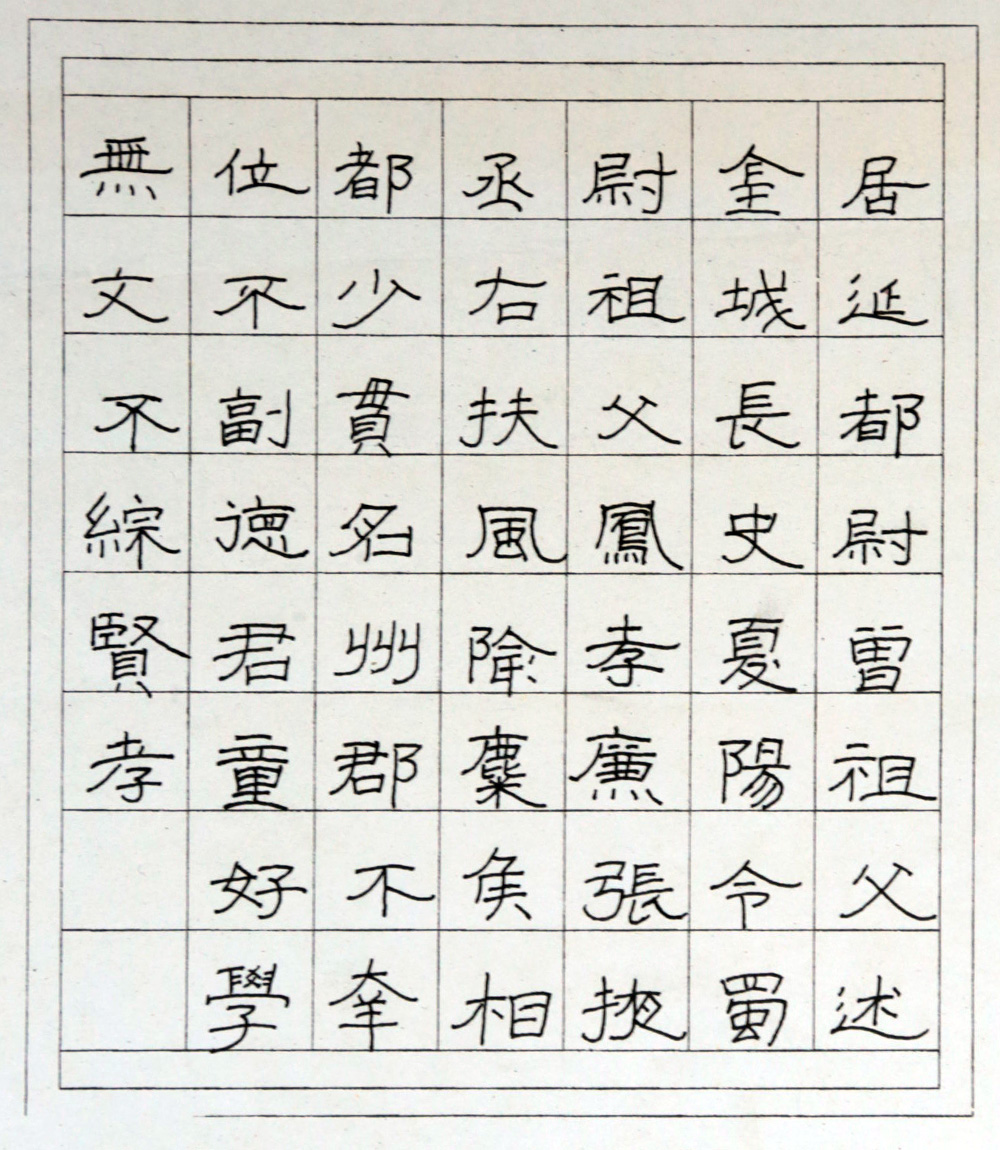 居延都尉曾祖父述
金城長史夏陽令蜀
尉祖父鳳孝廉張掖
丞右扶風隃麋侯相
都少貫名州郡不幸
位不副德君童好學
無文不綜賢孝